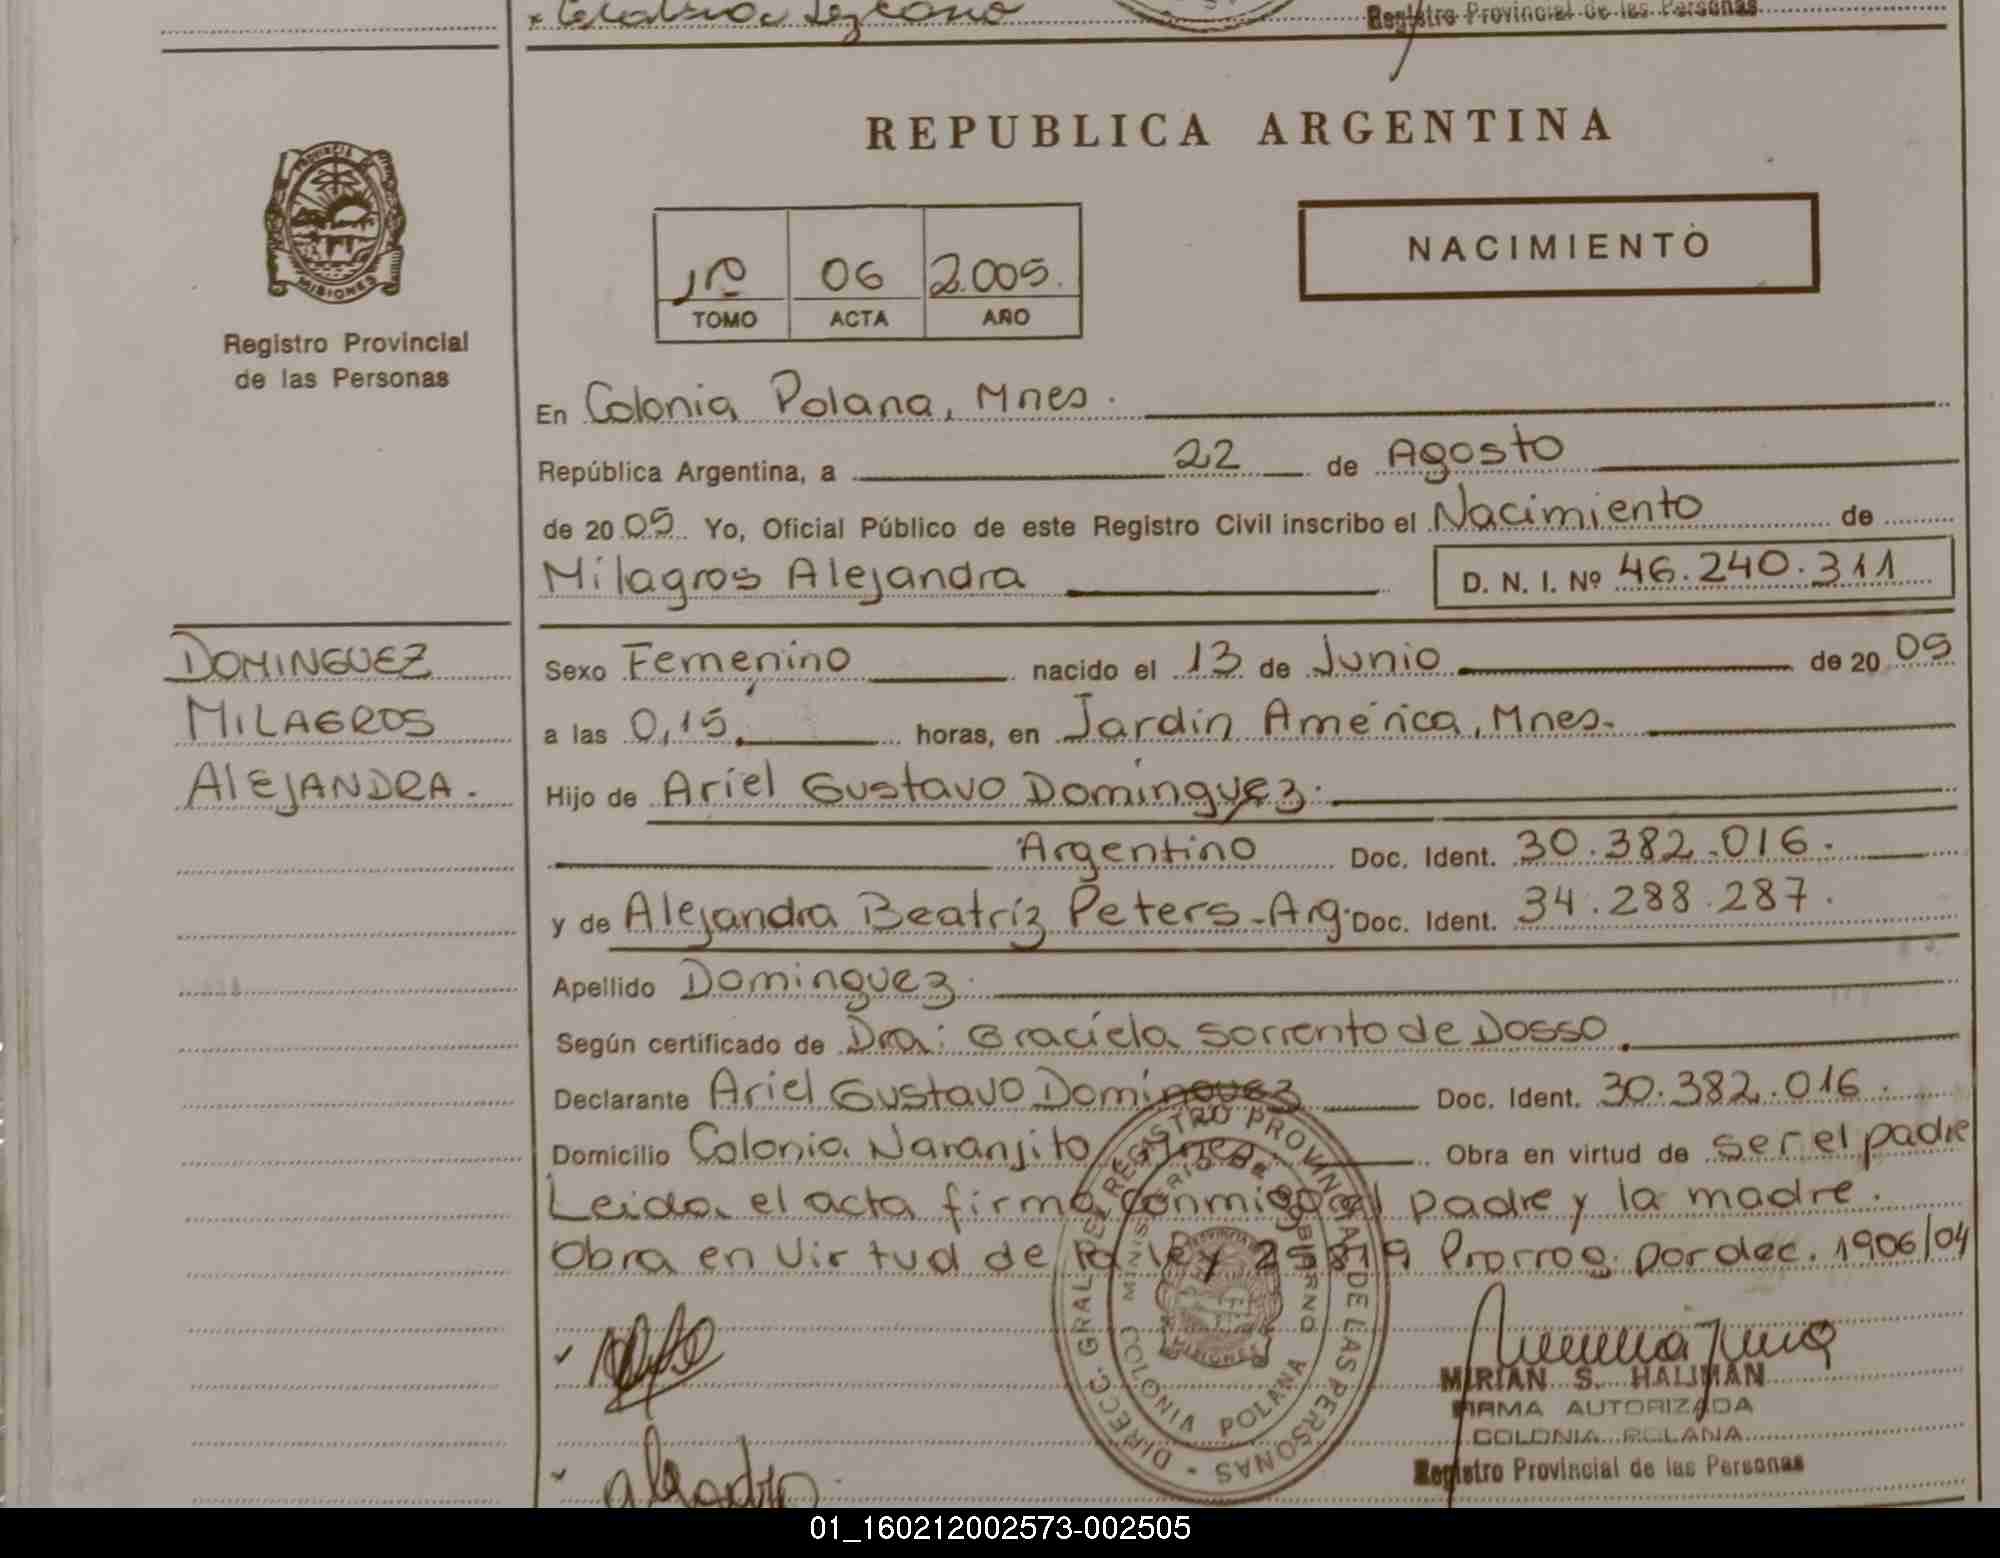 Registro Provincial de las Personas
REPUBLICA ARGENTINA
PROVINCIA
MISIONES
Registro Provincial
de las Personas
1º 06 2.005.
TOMO ACTA AÑO
NACIMIENTO
En Colonia Polana, Mnes.
República Argentina, a 22 de Agosto
de 20 05. Yo, Oficial Público de este Registro Civil inscribo el Nacimiento de
Milagros Alejandra D. N. I. Nº 46.240.311
DOMINGUEZ
MILAGROS
ALEJANDRA.
Sexo Femenino nacido el 13 de Junio de 20 05
a las 0,15, horas, en Jardín América, Mnes.
Hijo de Ariel Gustavo Dominguez.
Argentino Doc. Ident. 30.382.016.
y de Alejandra Beatríz Peters-Arg. Doc. Ident. 34.288.287.
Apellido Dominguez.
Según certificado de Dra: Graciela Sorrento de Dosso.
Declarante Ariel Gustavo Dominguez Doc. Ident. 30.382.016.
Domicilio Colonia Naranjito Mnes. Obra en virtud de ser el padre
Leida el acta firma conmigo el padre y la madre.
Obra en Virtud de la ley 25819 Prorrog. por dec. 1906/04
DIRECC. GRAL. DEL REGISTRO PROVINCIAL DE LAS PERSONAS
MINISTERIO DE GOBIERNO
COLONIA POLANA
MIRIAN S. HALIMAN
FIRMA AUTORIZADA
COLONIA POLANA
Registro Provincial de las Personas
01_160212002573-002505